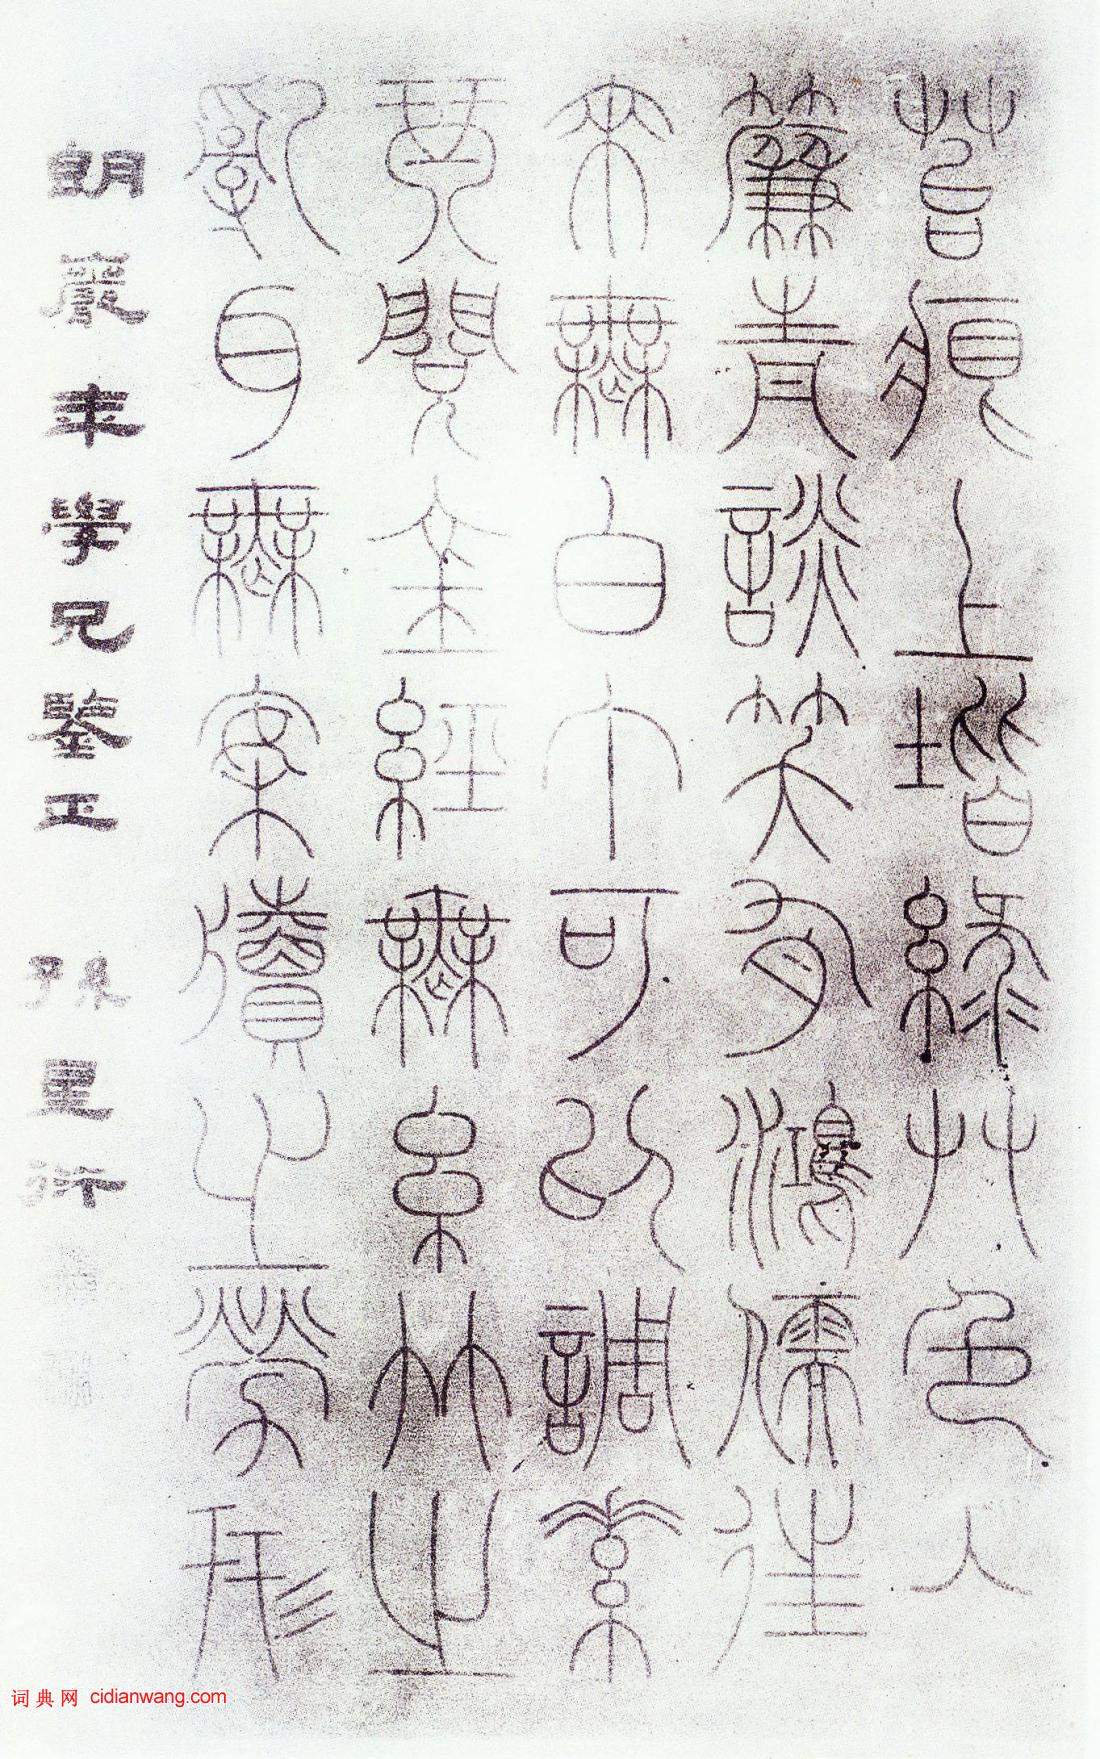 苔痕上堦緑艸色入
簾青談笑有鴻儒往
來無白丁可以調素
琴閱金經無糸竹之
亂耳無案牘之勞形
朗巖年學兄鑒正 孫星衍
词典网 cidianwang.com